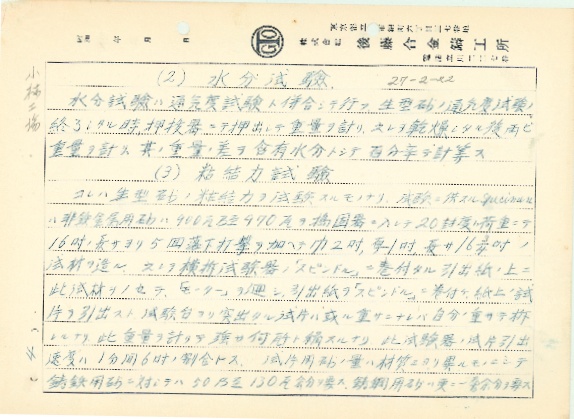 昭和 年 月 日
株式会社 後藤合金鋳工所
(2) 水分試験. 27-2-22
水分試験ハ通気度試験ト併合シテ行フ 生型砂ノ通気度試験ノ
終了シタル時押抜器ニテ押出シテ重量ヲ計リ, 之レヲ乾燥シタル後再ビ
重量ヲ計ル 其ノ重量ノ差ヲ含有水分トシテ百分率デ計算ス
(3) 粘結力試験
コレハ生型砂ノ粘結力ヲ試験スルモノナリ. 試験ニ供スル
ハ非鉄合金用砂ハ 900瓦乃至 970瓦ヲ搗固器ニ入レテ 20封度ノ荷重ニテ
16吋ノ長サヨリ 5回落下打撃ヲ加ヘテ巾2吋, 厚1吋 長サ16吋ノ
試材ヲ造ル. 之レヲ横折試験器ノ「スピンドル」ニ巻付タル引出紙ノ上ニ
此試材ヲノセテ,「モーター」ヲ廻シ, 引出紙ヲ「スピンドル」ニ巻付テ紙上ノ試
片ヲ引出スト 試験台ヨリ突出タル試片ハ或ル重サニナレバ自分ノ重サデ折
レルナリ. 此重量ヲ計リテ 此試験器ノ試片引出
速度ハ1分間6吋ノ割合トス. 試片用砂ノ量ハ材質ニヨリ異ルモノニシテ
鋳鉄用砂ニ対シテハ 50乃至130瓦余分ヲ要ス, 鋳鋼用砂ハ更ニ一層余分ヲ要ス